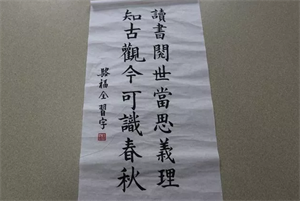 讀書閱世當思義理
知古觀今可識春秋
駱福全習字